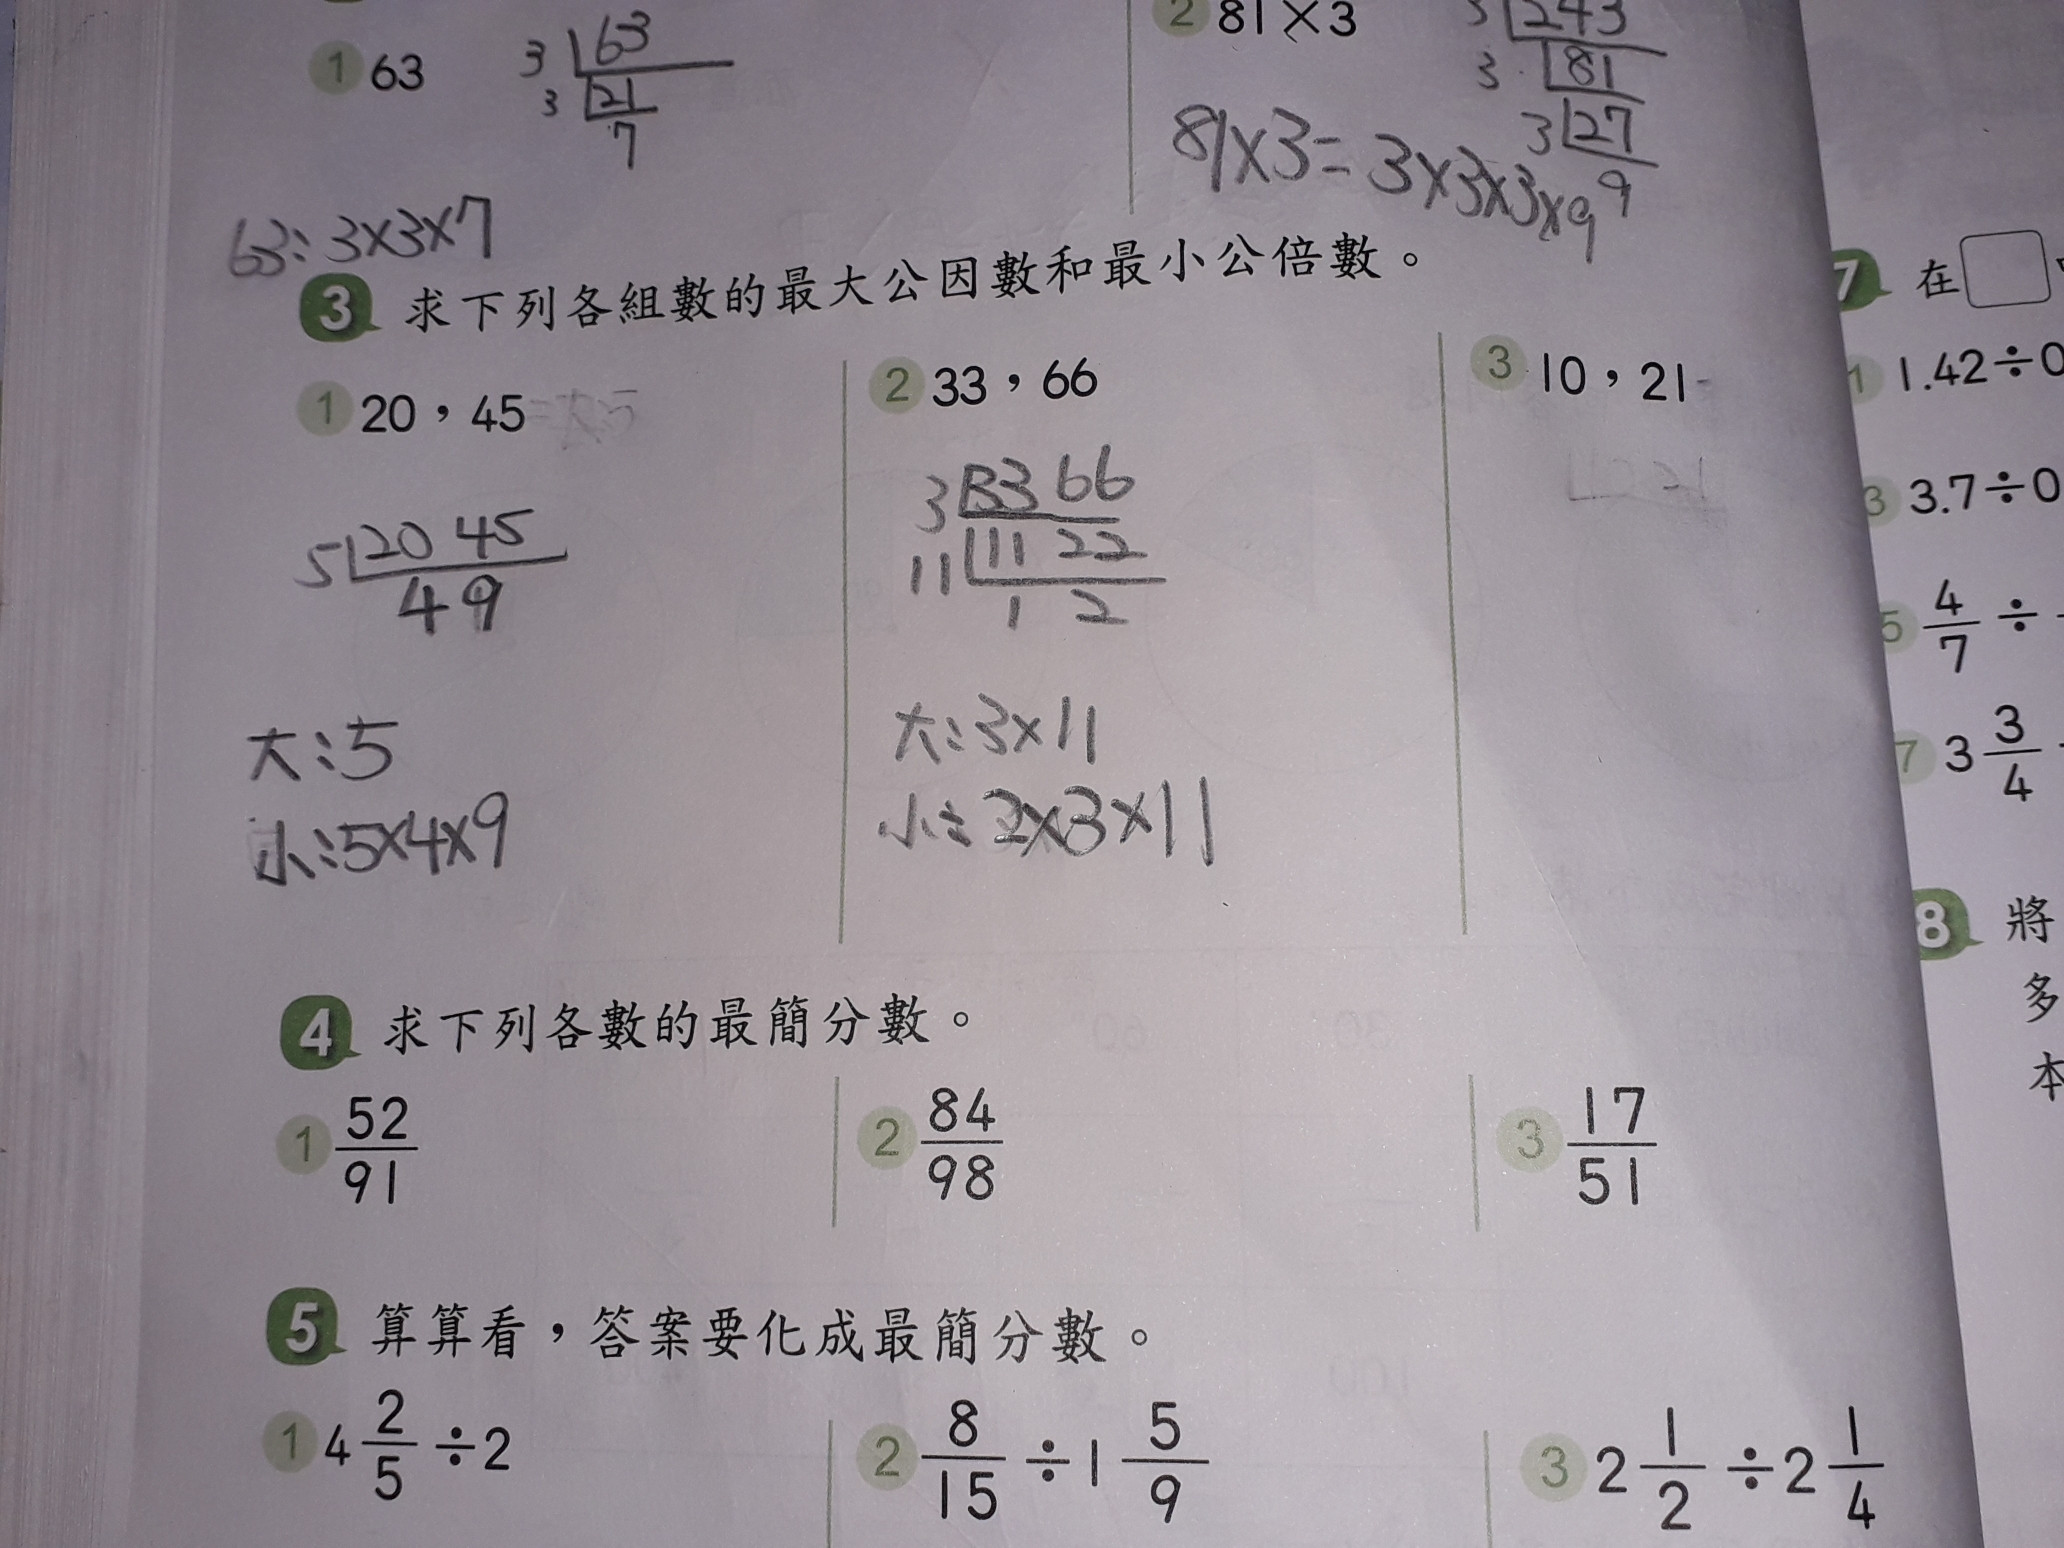 1 63
3 63
3 21
7
63:3×3×7
2 81×3
3 243
3 81
3 27
9
81×3=3×3×3×9
3 求下列各組數的最大公因數和最小公倍數。
1 20，45
5 20 45
4 9
大:5
小:5×4×9
2 33，66
3 33 66
11 11 22
1 2
大:3×11
小:2×3×11
3 10，21
4 求下列各數的最簡分數。
1 52/91
2 84/98
3 17/51
5 算算看，答案要化成最簡分數。
1 4 2/5 ÷2
2 8/15 ÷1 5/9
3 2 1/2 ÷2 1/4
7 在
1 1.42÷0
3 3.7÷0
5 4/7 ÷
7 3 3/4
8 將
多
本